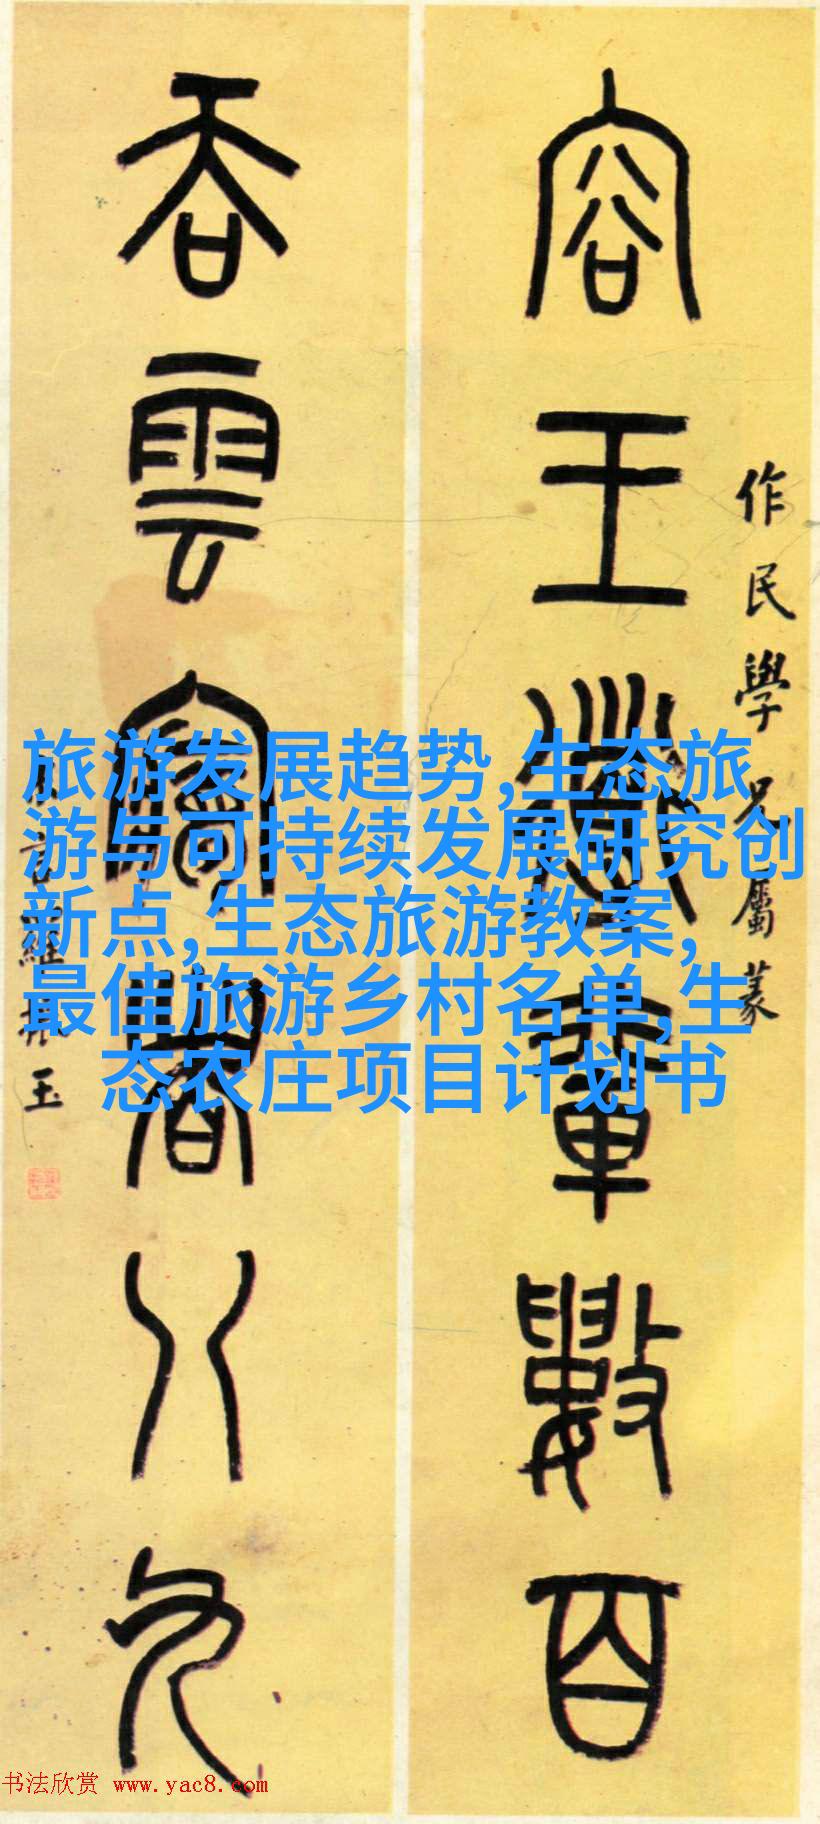 作民學兄屬篆
容王輩數百
吞雲夢者八九
羅振玉
旅游发展趋势,生态旅
游与可持续发展研究创
新点,生态旅游教案,
最佳旅游乡村名单,生
态农庄项目计划书
书法欣赏 www.yac8.com